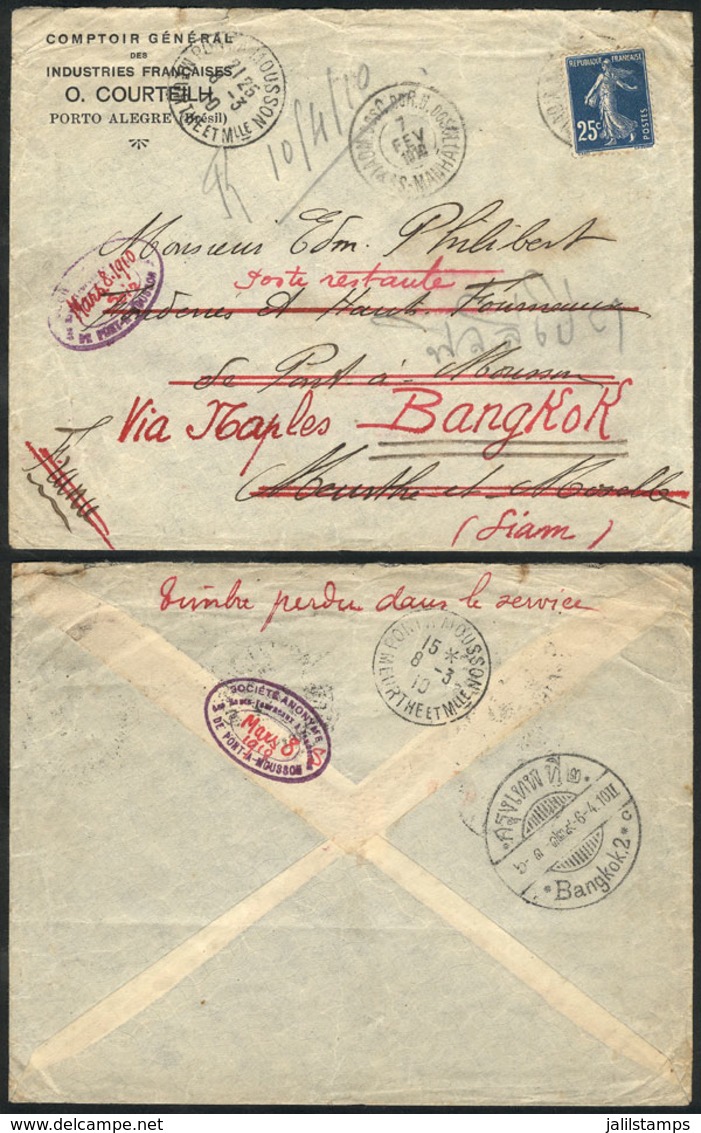 COMPTOIR GÉNÉRAL
DES
INDUSTRIES FRANÇAISES
O. COURTEILH
PORTO ALEGRE (Brésil)
PONT-A-MOUSSON
MEURTHE ET MLLE
21 25
8 -3
10
7
FEV
REPUBLIQUE FRANÇAISE
25c
POSTES
10/4/10
Monsieur Edm. Philibert
Poste restante
Fonderies et Hauts Fourneaux
Mars 8. 1910
DE PONT-A-MOUSSON
de Pont à Mousson
Via Naples BANGKOK
Meurthe et Moselle
(Siam)
timbre perdu dans le service
PONT-A-MOUSSON
15 *
8 -3
10
MEURTHE ET MLLE
SOCIÉTÉ ANONYME
Mars 8
1910
DE PONT-A-MOUSSON
กรุงเทพ ที่ ๒
6-4.10
Bangkok.2
jalilstamps